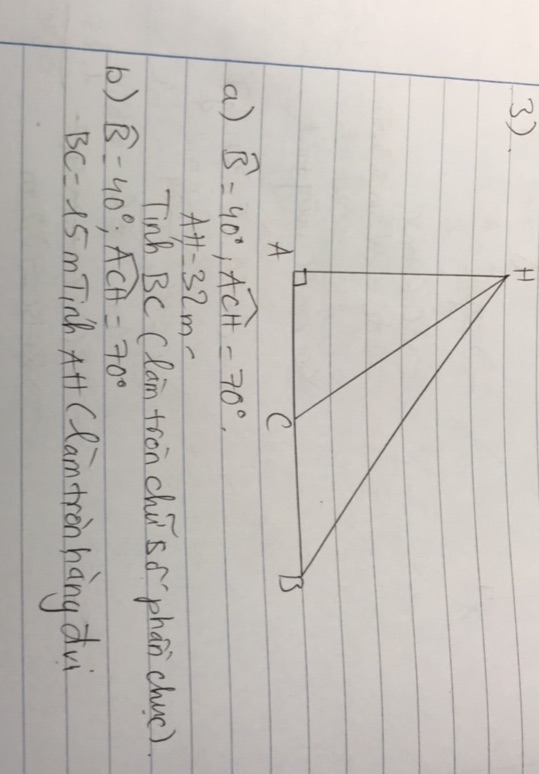 3)
H
A
C
B
a) B̂ = 40°, ACH = 70°.
AH = 32m
Tính BC (làm tròn chữ số phần chục).
b) B̂ = 40°. ACH = 70°
BC = 15m Tính AH (làm tròn hàng đvị